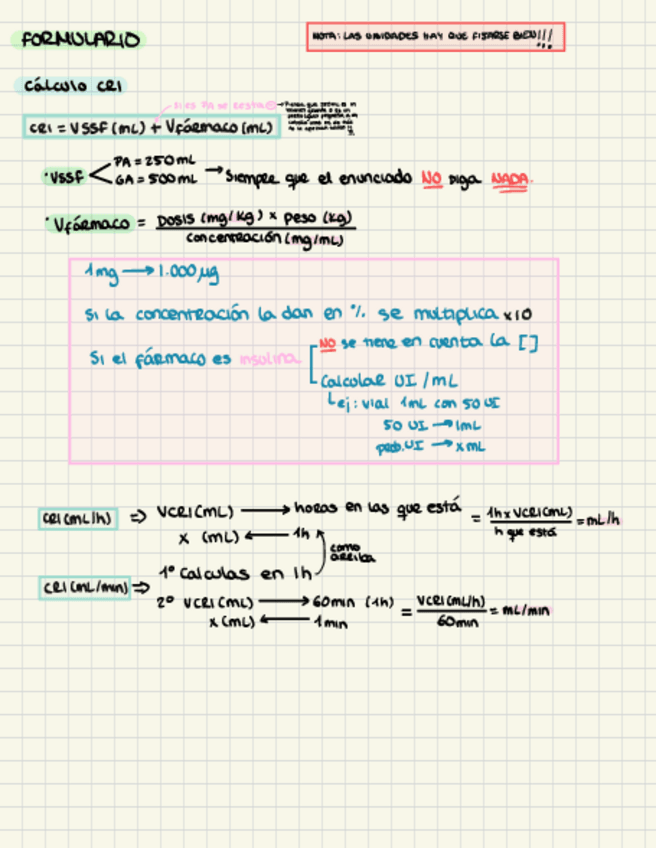 FORMULARIO
NOTA: LAS UNIDADES HAY QUE FIJARSE BIEN!!!
Cálculo CRI
si es PA se resta
CRI = VSSF (mL) + Vfármaco (mL)
· VSSF
PA = 250 mL
GA = 500 mL
→ Siempre que el enunciado NO diga NADA.
· Vfármaco = Dosis (mg/kg) x peso (kg)
concentración (mg/mL)
1mg → 1.000 µg
Si la concentración la dan en % se multiplica x10
Si el fármaco es insulina
NO se tiene en cuenta la []
Calcular UI/mL
ej: vial 1mL con 50 UI
50 UI → 1mL
prob. UI → x mL
CRI (mL/h) ⇒ VCRI (mL) → horas en las que está = 1h x VCRI (mL) = mL/h
h que está
x (mL) ← 1h
como arriba
1º Calculas en 1h
CRI (mL/min) ⇒
2º VCRI (mL) → 60min (1h) = VCRI (mL/h) = mL/min
60min
x (mL) ← 1min